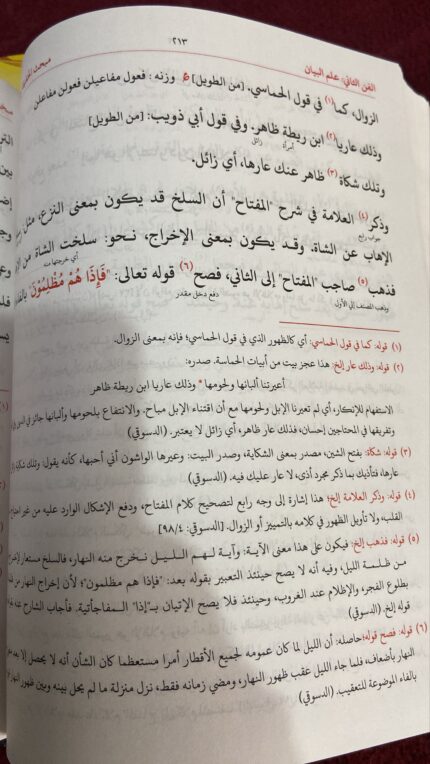 ٢١٣
الفن الثاني: علم البيان
مبحث
الزوال، كما(١) في قول الحماسي. [من الطويل] وزنه: فعول مفاعيلن فعولن مفاعلن
وذلك عاريا(٢) ابن ريطة ظاهر. وفي قول أبي ذويب: [من الطويل]
امرأة زائل
وتلك شكاة(٣) ظاهر عنك عارها، أي زائل.
وذكر(٤) العلامة في شرح "المفتاح" أن السلخ قد يكون بمعنى النزع، مثل
جواب رابع
الإهاب عن الشاة. وقد يكون بمعنى الإخراج، نحو: سلخت الشاة من
أي خرجتها منه
فذهب(٥) صاحب "المفتاح" إلى الثاني، فصح(٦) قوله تعالى: "فَإِذَا هُمْ مُظْلِمُوْنَ" بالفاء
وذهب المصنف إلى الأول دفع دخل مقدر
(١) قوله: كما في قول الحماسي: أي كالظهور الذي في قول الحماسي؛ فإنه بمعنى الزوال.
(٢) قوله: وذلك عار إلخ: هذا عجز بيت من أبيات الحماسة. صدره:
أعيرتنا ألبانها ولحومها * وذلك عاريا ابن ريطة ظاهر
الاستفهام للإنكار، أي لم تعيرنا الإبل ولحومها مع أن اقتناء الإبل مباح. والانتفاع بلحومها وألبانها جائز في الدين
وتفريقها في المحتاجين إحسان، فذلك عار ظاهر، أي زائل لا يعتبر. (الدسوقي)
(٣) قوله: شكاة: بفتح الشين، مصدر بمعنى الشكاية، وصدر البيت: وعيرها الواشون أني أحبها، كأنه يقول: وتلك شكاة
عارها، فتأذيك بما ذكر مجرد أذى، لا عار عليك فيه. (الدسوقي)
(٤) قوله: وذكر العلامة إلخ: هذا إشارة إلى وجه رابع لتصحيح كلام المفتاح، ودفع الإشكال الوارد عليه من غير
القلب، ولا تأويل الظهور في كلامه بالتمييز أو الزوال. [الدسوقي: ٩٨/٤]
(٥) قوله: فذهب إلخ: فيكون على هذا معنى الآية: وآية لهم الليل نخرج منه النهار، فالسلخ مستعار
من ظلمة الليل، وفيه أنه لا يصح حينئذ التعبير بقوله بعد: "فإذا هم مظلمون"؛ لأن إخراج النهار من
بطلوع الفجر، والإظلام عند الغروب، وحينئذ فلا يصح الإتيان بـ"إذا" المفاجأتية. فأجاب الشارح عنه
قوله إلخ. (الدسوقي)
(٦) قوله: فصح قوله: حاصله: أن الليل لما كان عمومه لجميع الأقطار أمرا مستعظما كان الشأن أنه لا يحصل إلا بعد
النهار بأضعاف، فلما جاء الليل عقب ظهور النهار، ومضي زمانه فقط، نزل منزلة ما لم يحل بينه وبين ظهور النهار
بالفاء الموضوعة للتعقيب. (الدسوقي)